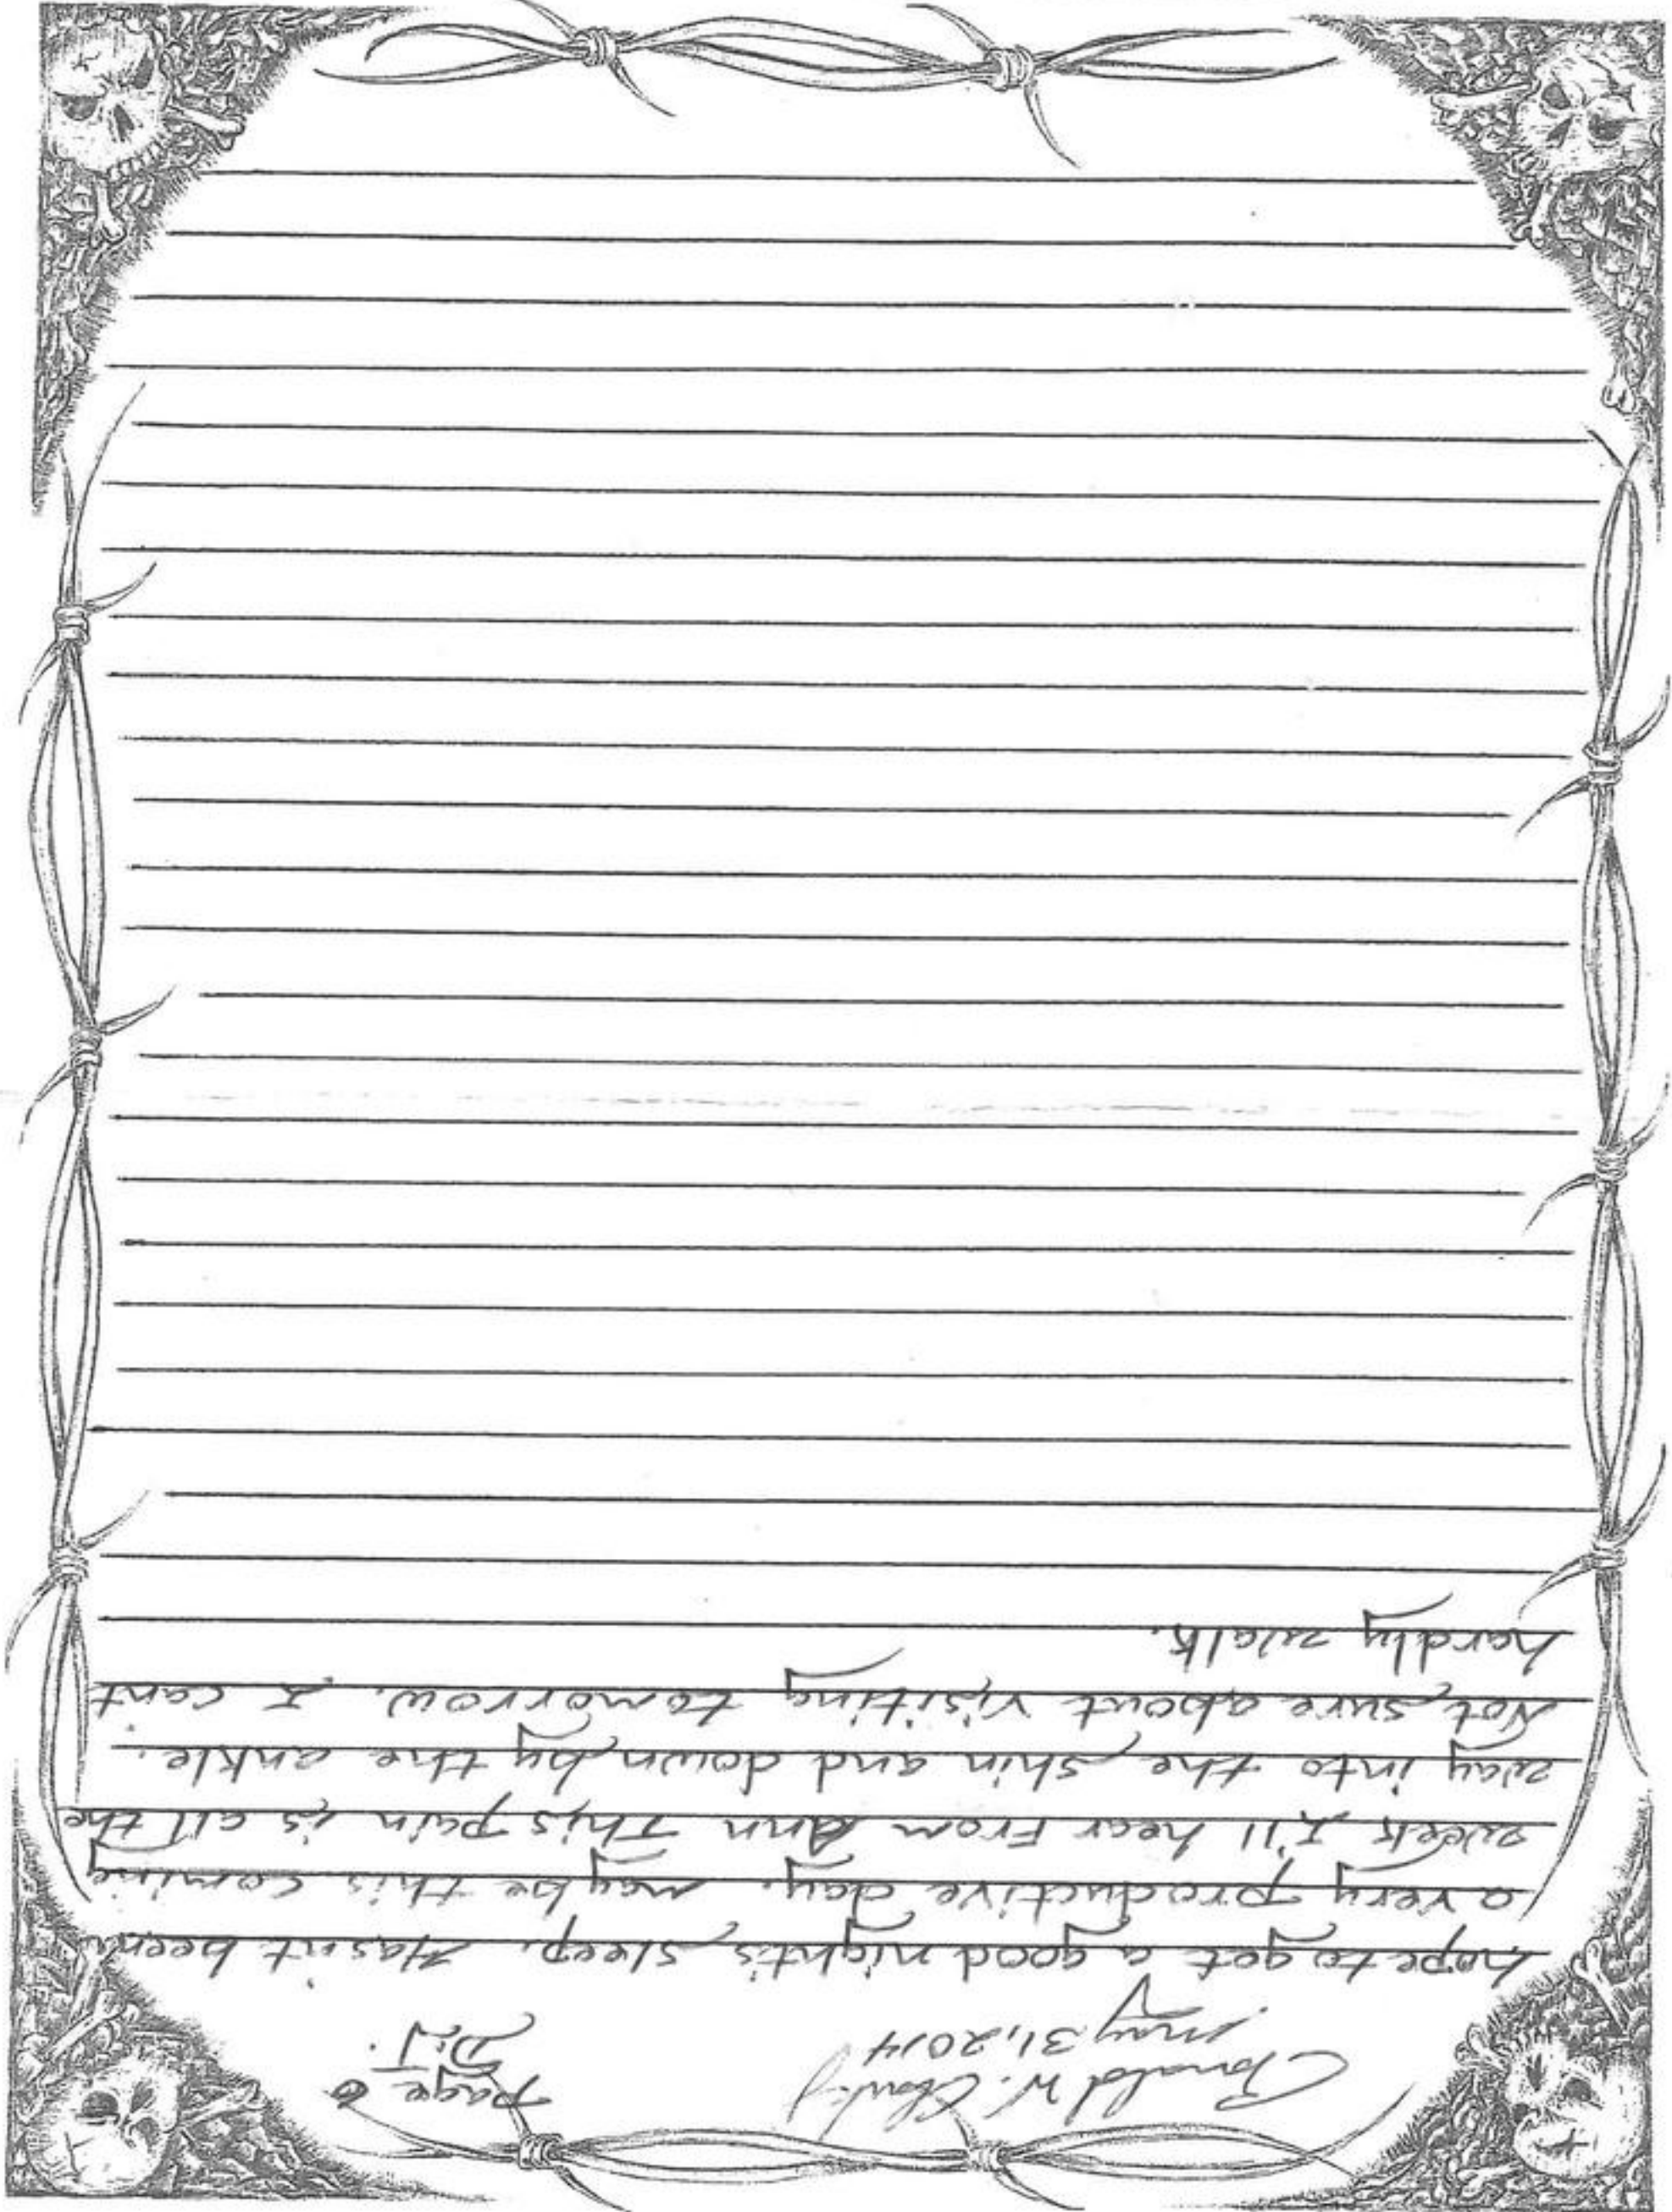 Ronald W. Clark Jr
May 31, 2014
Page 6
hope to get a good night's sleep. Hasn't been
a very productive day. maybe this coming
week I'll hear From Ann This pain is all the
way into the shin and down by the ankle.
Not sure about visiting tomorrow. I cant
hardly walk.